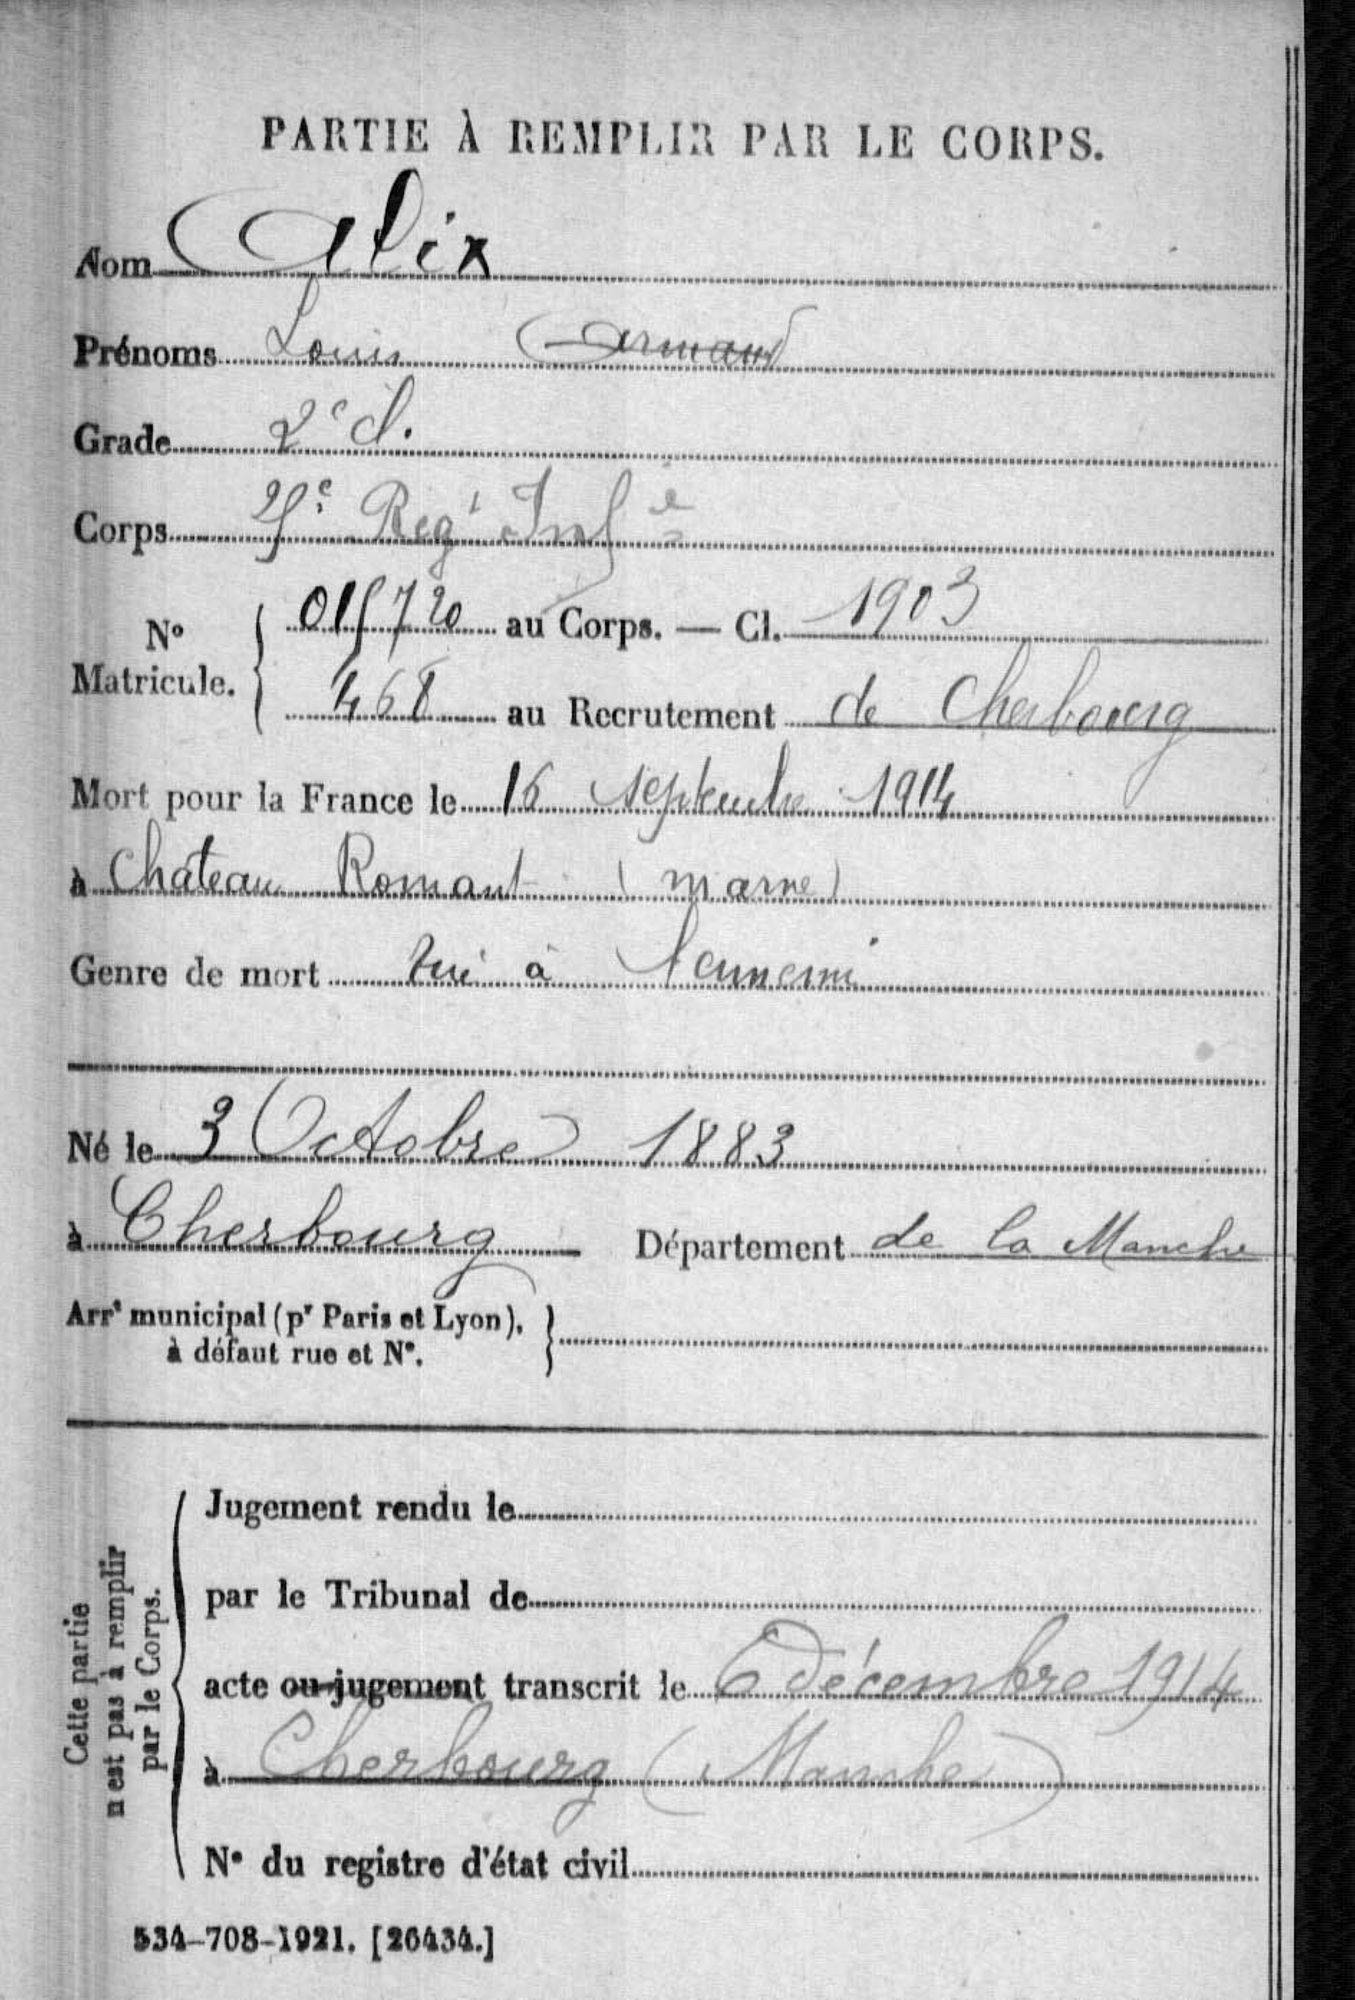 PARTIE À REMPLIR PAR LE CORPS.
Nom Alix
Prénoms Louis Armand
Grade 2e cl.
Corps 25e Regt Infie
No Matricule. { 015720 au Corps. — Cl. 1903
468 au Recrutement de Cherbourg
Mort pour la France le 16 septembre 1914
à Château Romont (marne)
Genre de mort tué à l'ennemi
Né le 3 Octobre 1883
à Cherbourg Département de la Manche
Arrt municipal (pr Paris et Lyon), }
à défaut rue et No.
Cette partie
n'est pas à remplir
par le Corps.
Jugement rendu le
par le Tribunal de
acte ou jugement transcrit le 6 décembre 1914
à Cherbourg (Manche)
No du registre d'état civil
534-708-1921. [26434.]